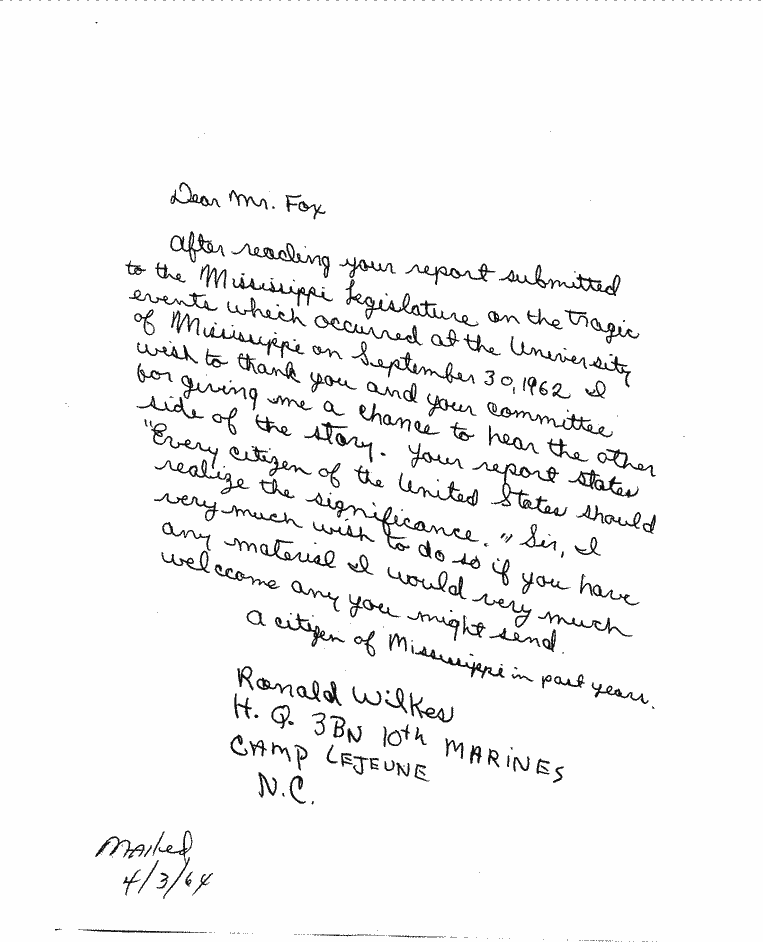 Dear Mr. Fox
After reading your report submitted
to the Mississippi Legislature on the tragic
events which occurred at the University
of Mississippi on September 30, 1962 I
wish to thank you and your committee
for giving me a chance to hear the other
side of the story. Your report states
"Every citizen of the United States should
realize the significance." Sir, I
very much wish to do so if you have
any material I would very much
welccome any you might send.
A citizen of Mississippi in past years.
Ronald Wilkes
H. Q. 3BN 10th MARINES
CAMP LEJEUNE
N.C.
Mailed
4/3/64